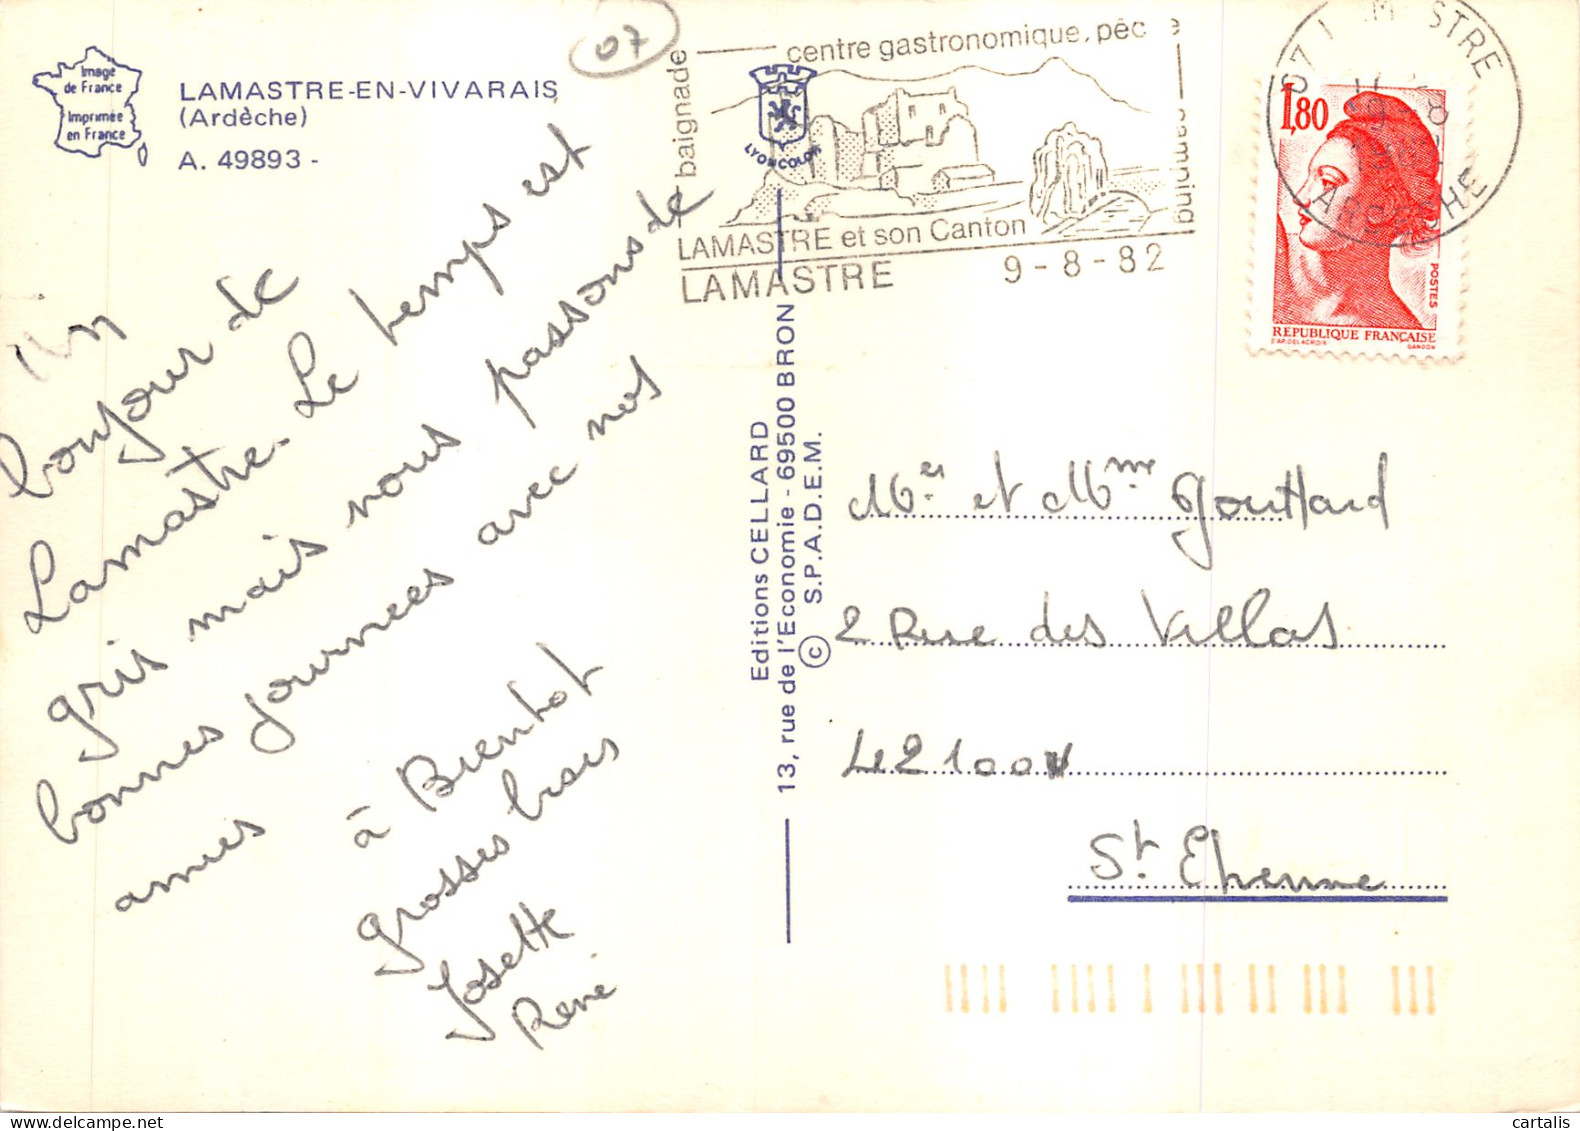 Image
de France
Imprimée
en France
LAMASTRE-EN-VIVARAIS
(Ardèche)
A. 49893 -
07
baignade
centre gastronomique, pêc
camping
LYONCOLOR
LAMASTRE et son Canton
LAMASTRE 9-8-82
07 LAMASTRE
ARDECHE
1,80
POSTES
REPUBLIQUE FRANÇAISE
D'AP. DELACROIX GANDON
Un
bonjour de
Lamastre. Le temps est
gris mais nous passons de
bonnes journées avec nos
amies
à Bientot
grosses bises
Josette
René
Editions CELLARD
13, rue de l'Economie - 69500 BRON
© S.P.A.D.E.M.
Mer et Mme Gouttard
2 Rue des Villas
42100
St Etienne
cartalis